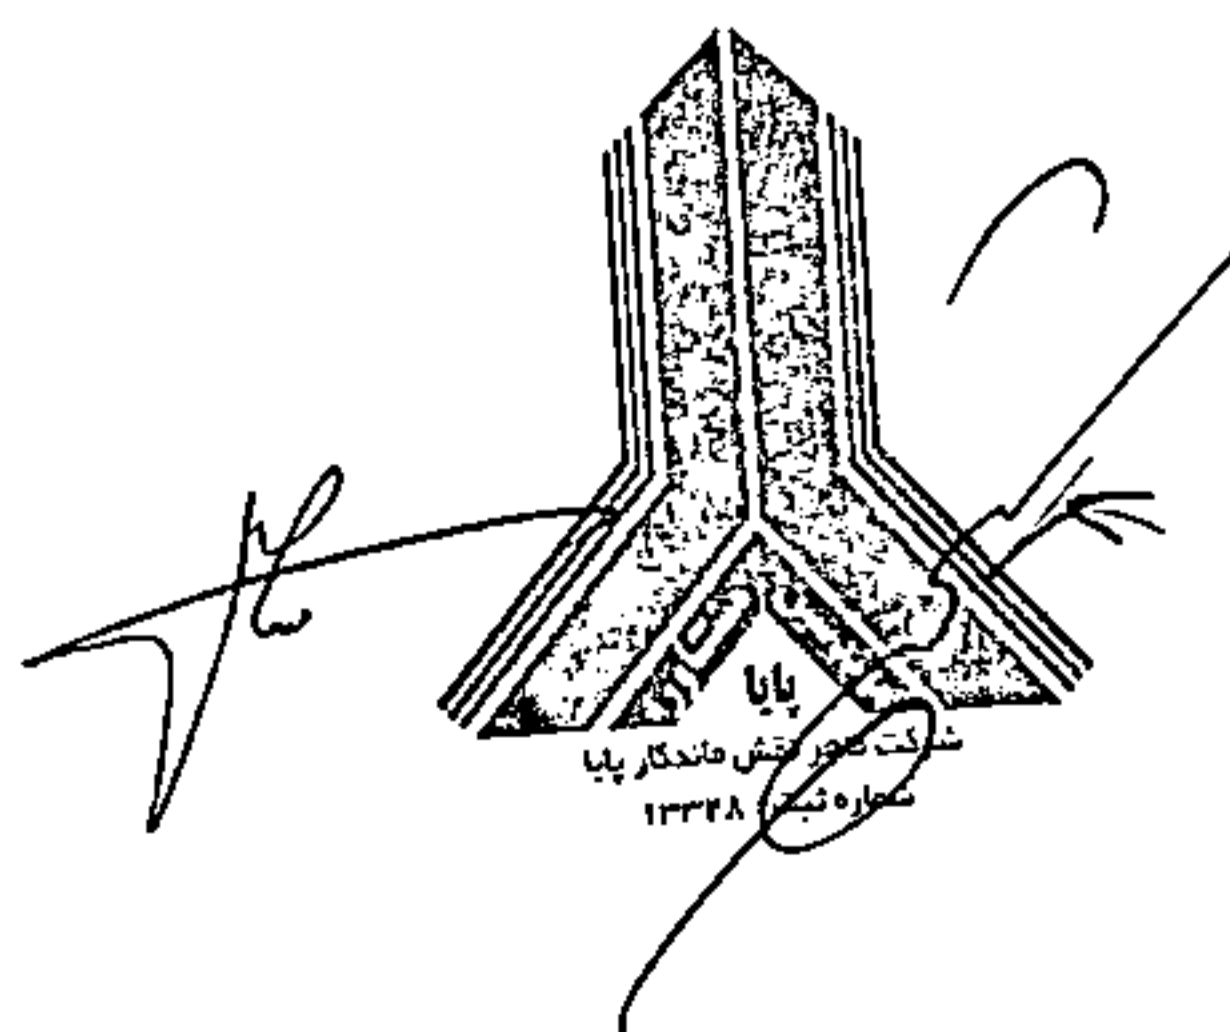 پایا
شرکت نقش ماندگار پایا
شماره ثبت: ۱۳۳۲۸